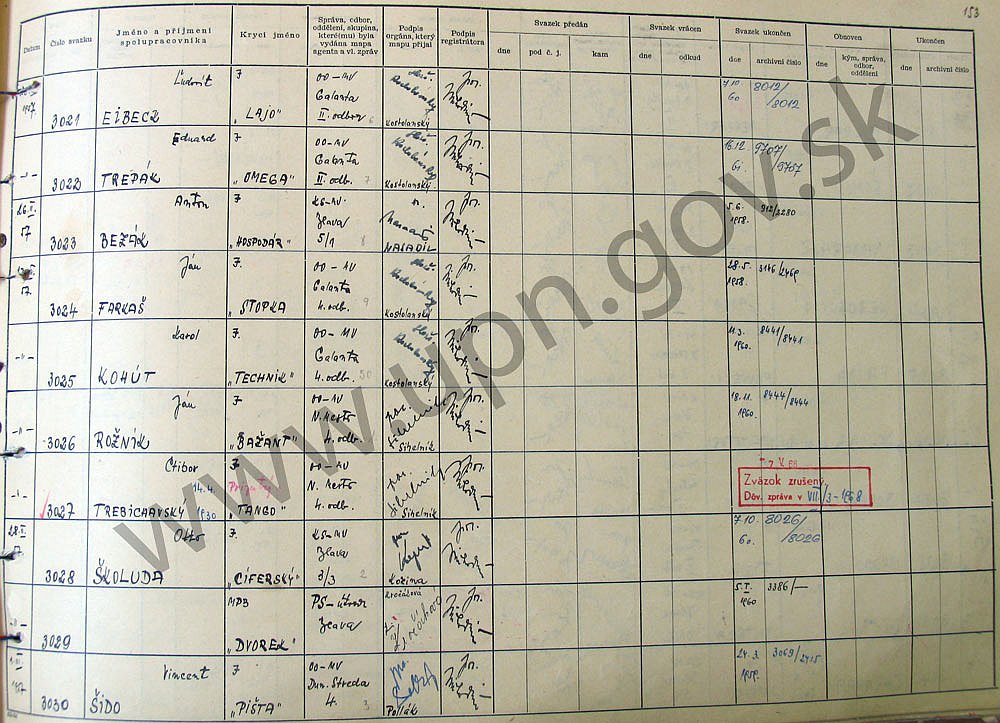 153
Datum
Číslo svazku
Jméno a příjmení
spolupracovníka
Krycí jméno
Správa, odbor,
oddělení, skupina,
kteréí(mu) byla
vydána mapa
agenta a vl. zpráv
Podpis
orgána, který
mapu přijal
Podpis
registrátora
Svazek předán
dne
pod č. j.
kam
Svazek vrácen
dne
odkud
Svazek ukončen
dne
archivní číslo
Obnoven
dne
kým, správa,
odbor,
oddělení
Ukončen
dne
archivní číslo
3021
Ľudovít
EIBECZ
"LAJO"
OO-MV
Galanta
II. odbor
Kostolanský
7.10.
60
8012
/8012
3022
Eduard
TREPÁK
"OMEGA"
OO-MV
Galanta
II. odb.
Kostolanský
16.12.
61.
9707/
/9707
26.II.
57
3023
Anton
BEZÁK
"HOSPODÁR"
KS-MV
Ilava
5/1
NALADIL
5.6.
1958.
912/2280
57
3024
Ján
FARKAŠ
"STOPKA
OO-MV
Galanta
4. odb.
Kostolanský
28.5.
1958.
3146/2469
3025
Karol
KOHÚT
"TECHNIK"
OO-MV
Galanta
4. odb.
Kostolanský
11.3.
1960.
8441/8441
3026
Ján
ROŽNÍK
"BAŽANT"
OO-MV
N. Mesto
4. odb.
Sihelník
18.11.
1960.
8444/8444
3027
Ctibor
14.4.
TREBICHAVSKÝ 1930
"TANGO"
OO-MV
N. Mesto
4. odb.
Sihelník
Zväzok zrušený
Dôv. zpráva v VII/3-1968
28.II.
57
3028
Otto
ŠKOLUDA
"CÍFERSKÝ"
KS-MV
Ilava
3/3
Kozina
7.10.
60.
8026/
/8026
3029
MPB
"DVOREK"
PS-útvar
Ilava
Kročáková
5.I.
1960
3386/—
3030
Vincent
ŠIDO
"PIŠTA"
OO-MV
Dun. Streda
4.
Pollák
24.3.
1959.
3069/2415
www.upn.gov.sk